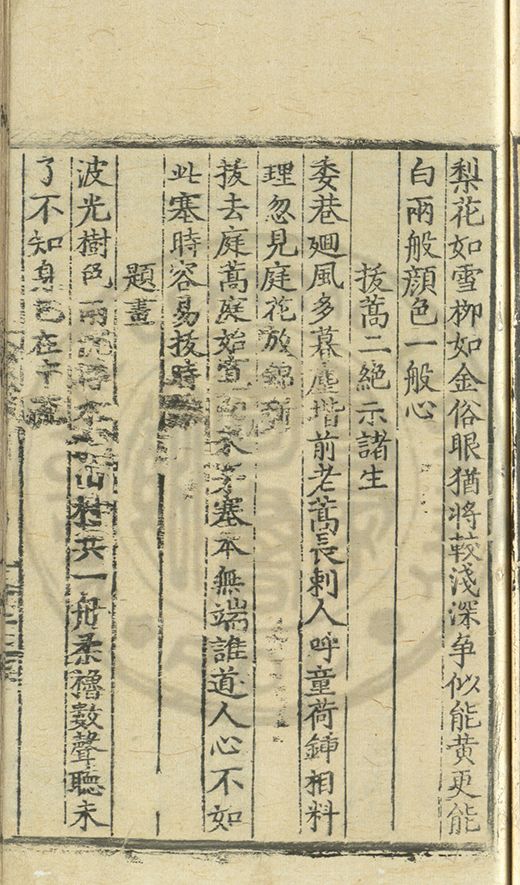 梨花如雪柳如金俗眼猶將較淺深争似能黄更能
白兩般顔色一般心
拔蒿二絶示諸生
委巷廻風多暮塵堦前老蒿長刺人呼童荷鍤相料
理忽見庭花放錦
拔去庭蒿庭始寛 塞本無端誰道人心不如
此塞時容易拔時
題畫
波光樹色兩 山村共一舟柔櫓數聲聽未
了不知身已在